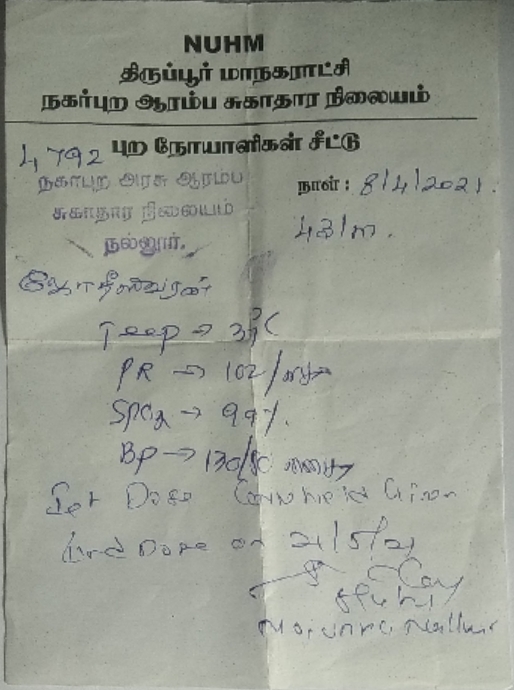 NUHM
திருப்பூர் மாநகராட்சி
நகர்புற ஆரம்ப சுகாதார நிலையம்
4,792 புற நோயாளிகள் சீட்டு
நகர்புற அரசு ஆரம்ப
சுகாதார நிலையம்
நல்லூர்.
நாள் : 8/4/2021.
43/m.
Temp → 37°C
PR → 102/
SPO2 → 99%.
BP → 130/80
Ist Dose Covishield Given
IInd Dose on 21/5/21